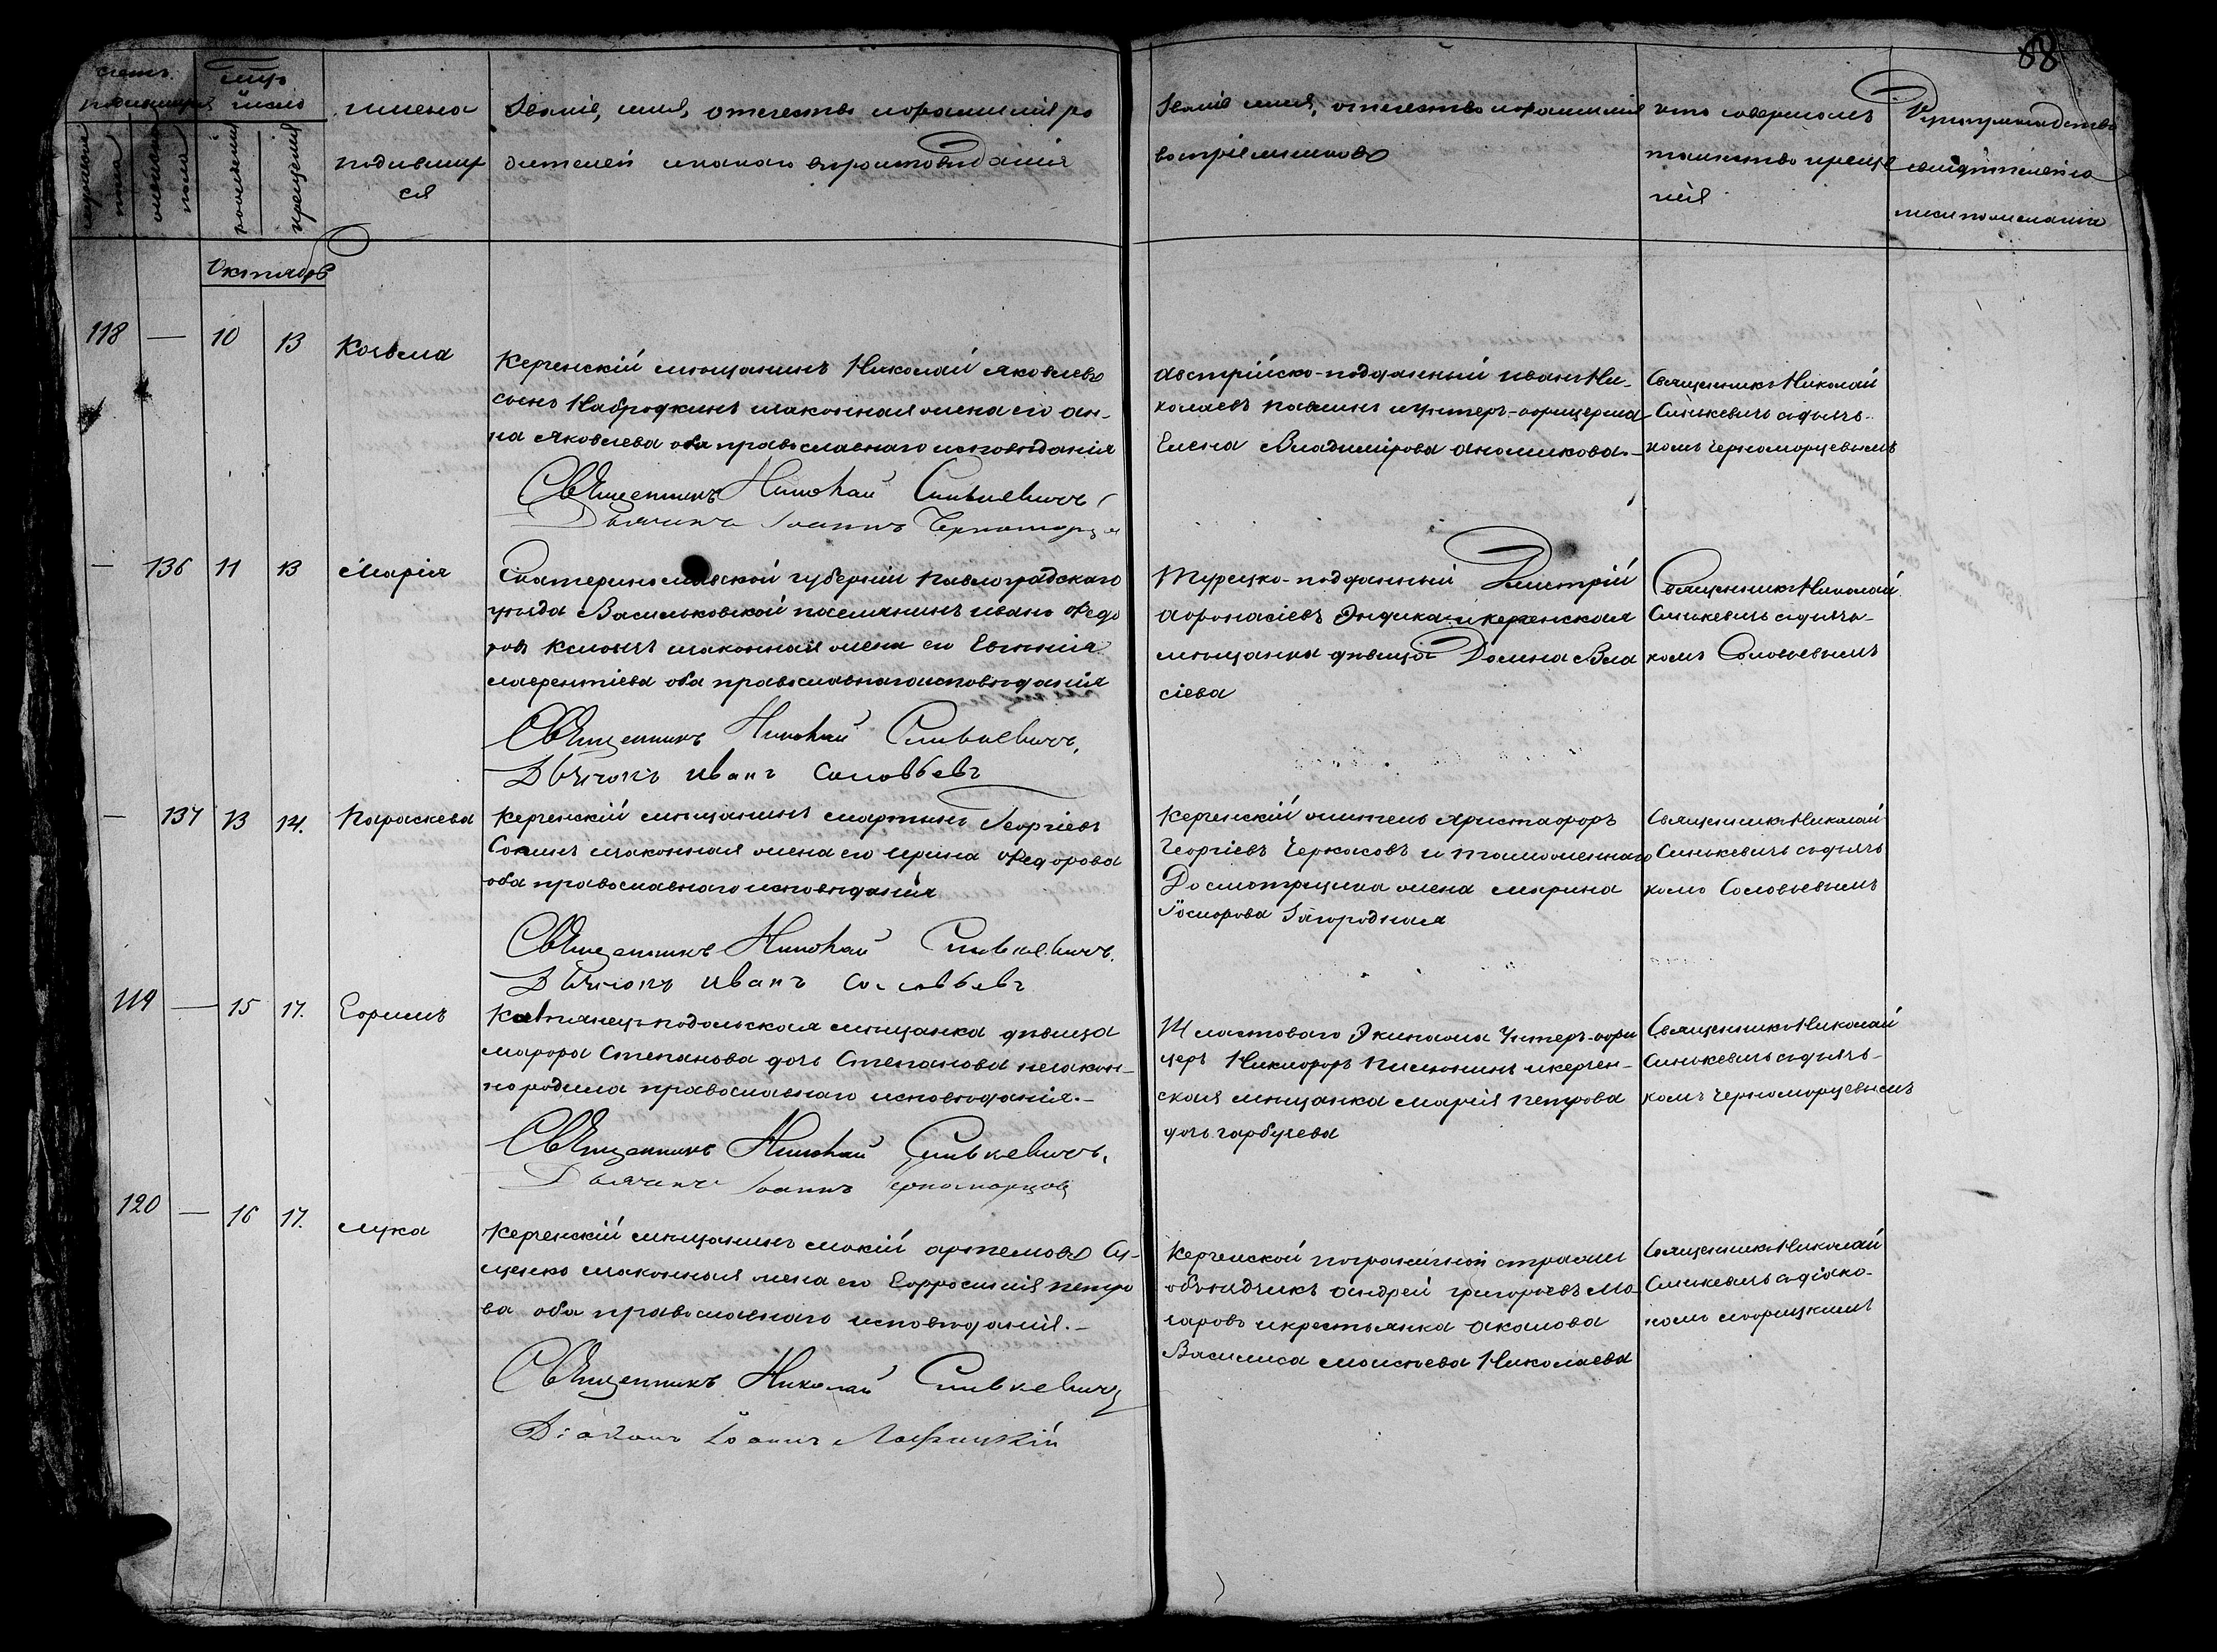 88
счетъ
родившихся
мужеска
пола
женска
пола
число
рожденія
крещенія
имена
родившихъ
ся
Званіе, имя, отчество и фамилія ро
дителей и какого вѣроисповѣданія
Званіе имя, отчество и фамилія
воспріемниковъ
кто совершалъ
таинство креще
нія
Рукоприкладство
свидѣтелей по
желанію
Октябрь
118 — 10 13 Козьма
Керченскій мѣщанинъ Николай Яковлевъ
сынъ Набродкинъ и законная жена его Ан-
на Яковлева оба православнаго исповѣданія
Священникъ Николай Синькевичъ
Дьячекъ Іоаннъ Черноморцев
Австрійско-подданный Иванъ Ни-
колаевъ Павлинъ и унтеръ-офицерша
Елена Владимірова Аношкова.-
Священникъ Николай
Синькевичъ с дьяч-
комъ Черноморцевымъ
— 136 11 13 Марія
Екатеринославской губерніи Павлоградскаго
уѣзда Васильковской поселянинъ Иванъ Федо
ровъ и законная жена его Евгенія
Лаврентіева оба православнаго исповѣданія
Священникъ Николай Синькевичъ,
Дьячокъ Иванъ Соловьевъ
Турецко-подданный Дмитрій
Афонасіевъ Эндика и керченская
мѣщанка дѣвица Домна Вла
сіева
Священникъ Николай
Синькевичъ с дьяч-
комъ Соловьевымъ
— 137 13 14. Параскева
Керченскій мѣщанинъ Мартинъ Георгіевъ
Сокинъ и законная жена его Ирина Федорова
оба православнаго исповѣданія
Священникъ Николай Синькевичъ.
Дьячокъ Иванъ Соловьевъ
Керченскій житель Христофоръ
Георгіевъ Черкасовъ и таможеннаго
Досмотрщика жена Марина
Загородная
Священникъ Николай
Синькевичъ с дьяч
комъ Соловьевымъ
119 — 15 17. Ефимъ
Каменецъ-подольская мѣщанка дѣвица
Марфа Степанова дочь Степанова незакон-
но родила православнаго исповѣданія.-
Священникъ Николай Синькевичъ,
Дьячекъ Іоаннъ Черноморцовъ
Ластоваго Экипажа Унтеръ-офи
церъ Никифоръ Писюнинъ и керчен-
ская мѣщанка Марія Петрова
дочь Гарбузева
Священникъ Николай
Синькевичъ с дьяч-
комъ Черноморцевымъ
120 — 16 17. Лука
Керченскій мѣщанинъ Мокій Артемовъ Су-
щенко и законная жена его Ефросинія Петро
ва оба православнаго исповѣданія.-
Священникъ Николай Синькевичъ
Діаконъ Іоаннъ Лофицкій
Керченской пограничной стражи
объѣздчикъ Андрей Григорьевъ Ма
каровъ и крестьянка Акамова
Василиса Моисѣева Николаева
Священникъ Николай
Синькевичъ с діако-
номъ Лофицкимъ